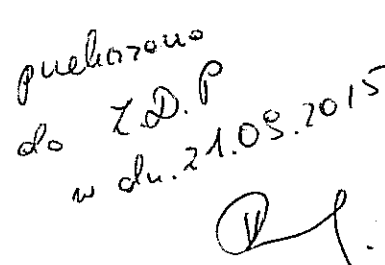 przekazano
do Z.D.P
w dn. 21.09.2015